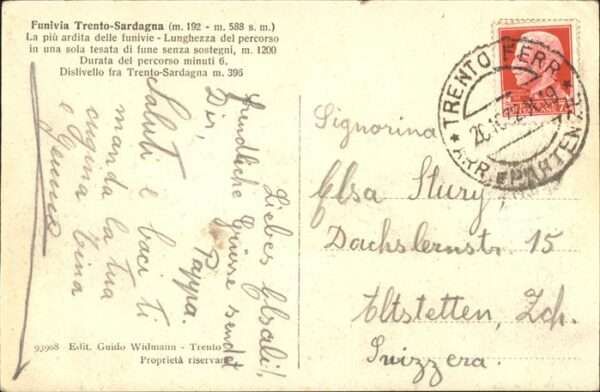 Funivia Trento-Sardagna (m. 192 - m. 588 s. m.)
La più ardita delle funivie - Lunghezza del percorso
in una sola tesata di fune senza sostegni, m. 1200
Durata del percorso minuti 6.
Dislivello fra Trento-Sardagna m. 396
Saluti e baci ti
manda la tua
cugina Tina
e Gemma
Liebes Elsali!,
Freundliche Grüsse sendet
Dir,
Pappa.
93908 Edit. Guido Widmann - Trento
Proprietà riservata
TRENTO FERR.
ARR. E PARTENZA
Signorina
Elsa Stury,
Dachslernstr. 15
Altstetten, Zch.
Svizzera.